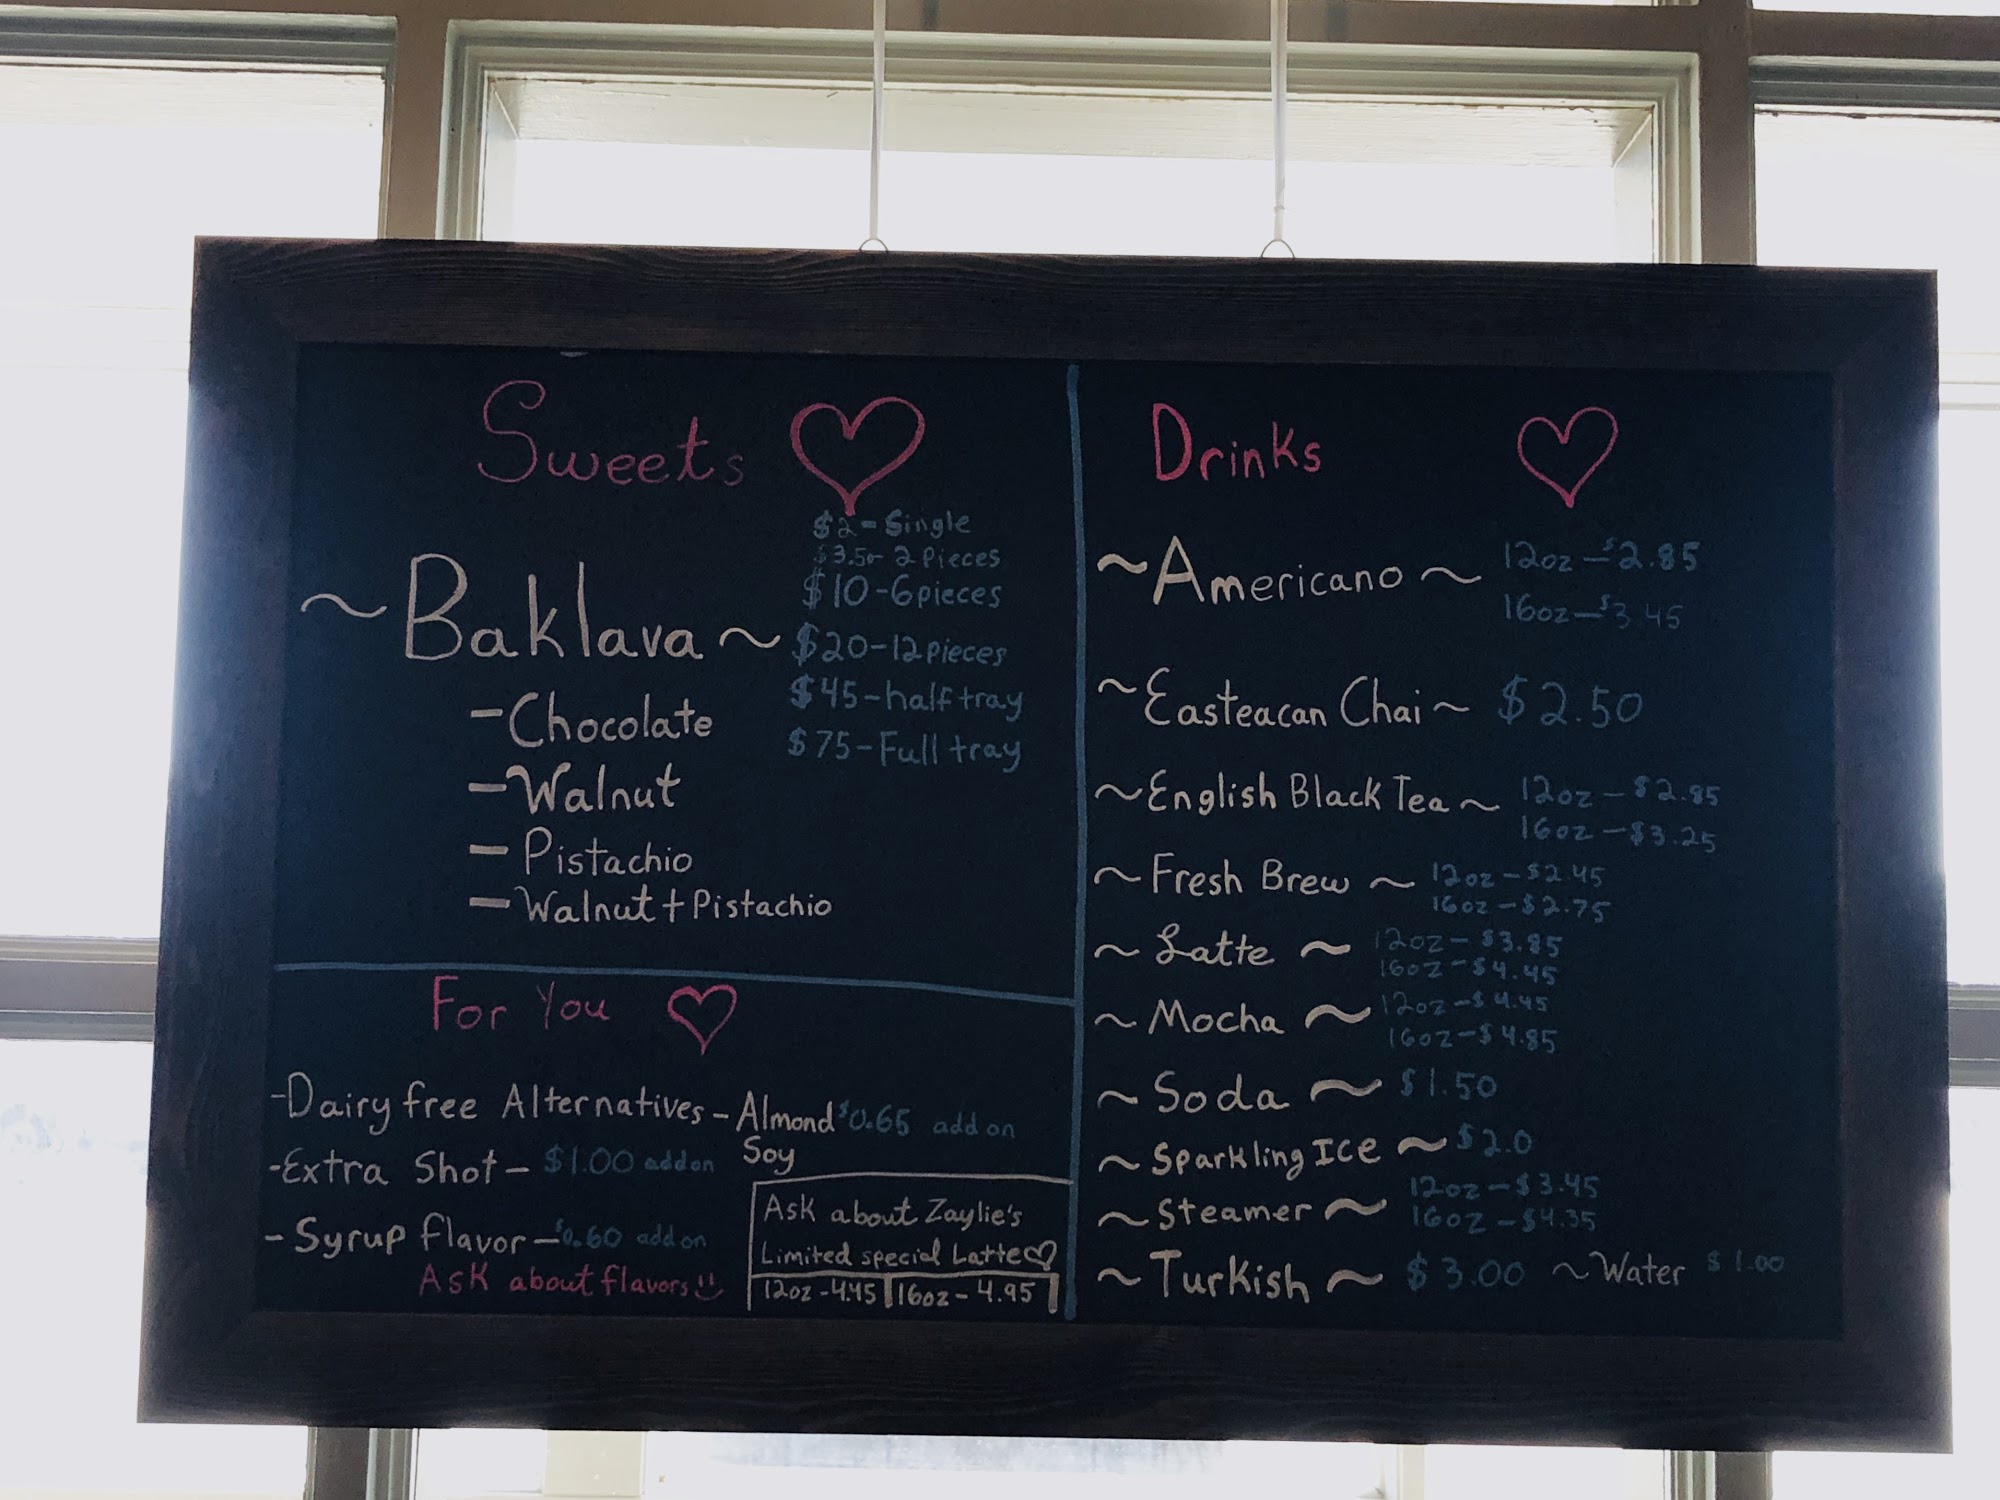 Sweets
$2-Single
$3.50-2 Pieces
~Baklava~ $10-6 pieces
$20-12 pieces
$45-half tray
$75-Full tray
-Chocolate
-Walnut
-Pistachio
-Walnut + Pistachio
For You
-Dairy free Alternatives-Almond $0.65 add on
Soy
-Extra Shot- $1.00 add on
-Syrup flavor-$0.60 add on
Ask about flavors
Ask about Zaylie's
Limited special Latte
12oz-4.45 16oz-4.95
Drinks
~Americano~ 12oz-$2.85
16oz-$3.45
~Easteacan Chai~ $2.50
~English Black Tea~ 12oz-$2.85
16oz-$3.25
~Fresh Brew~ 12oz-$2.45
16oz-$2.75
~Latte~ 12oz-$3.85
16oz-$4.45
~Mocha~ 12oz-$4.45
16oz-$4.85
~Soda~ $1.50
~Sparkling ICE~ $2.0
~Steamer~ 12oz-$3.45
16oz-$4.35
~Turkish~ $3.00 ~Water $1.00